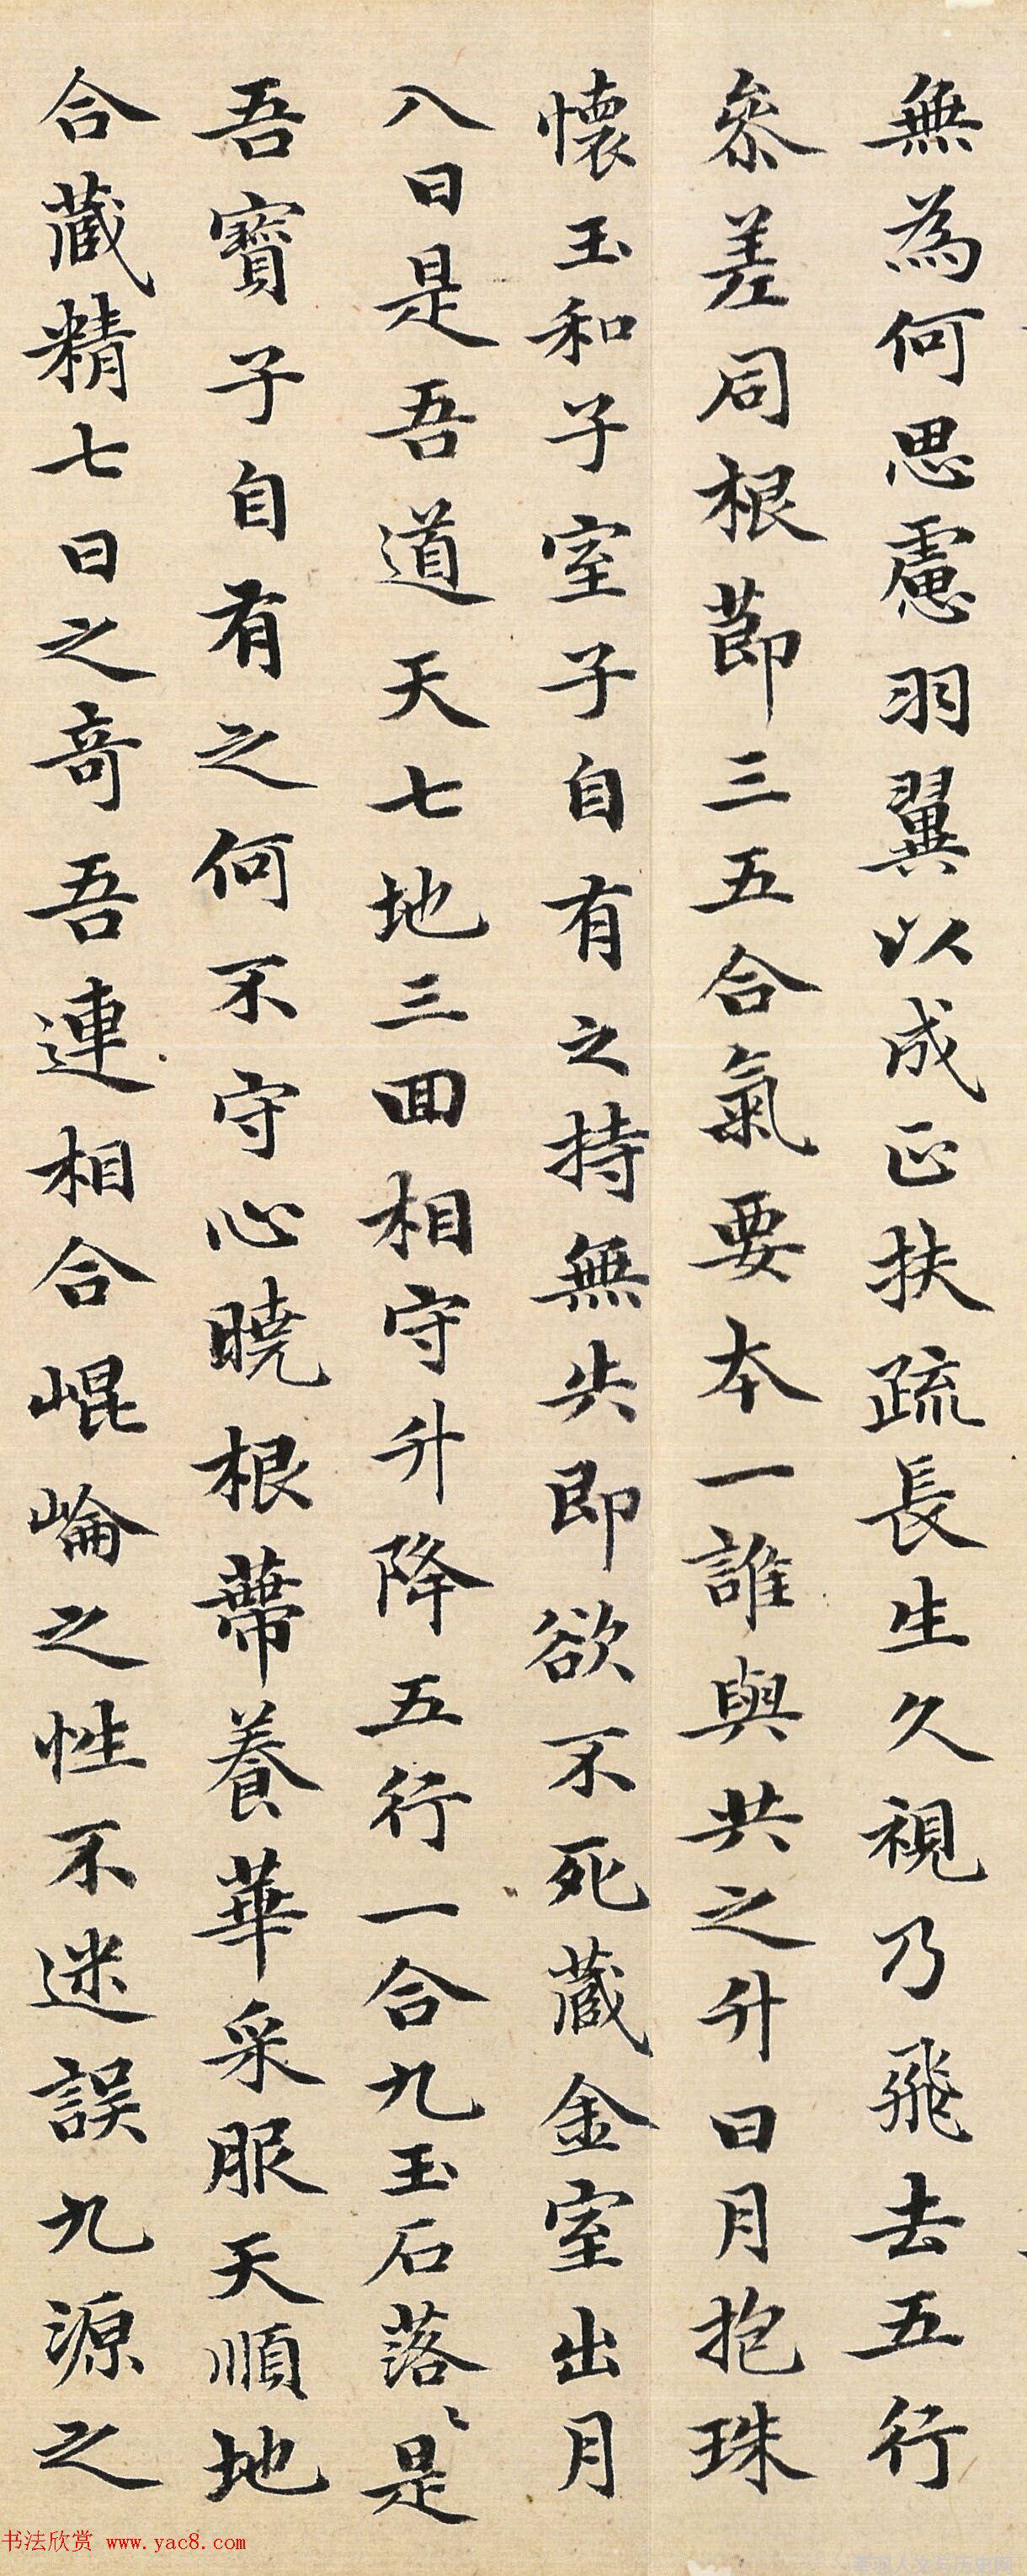 無為何思慮羽翼以成正扶疏長生久視乃飛去五行
参差同根莭三五合氣要本一誰與共之升日月抱珠
懐玉和子室子自有之持無失即欲不死蔵金室出月
入日是吾道天七地三回相守升降五行一合九玉石落〻是
吾寳子自有之何不守心曉根蔕養華采服天順地
合蔵精七日之奇吾連相合崐崘之性不迷誤九源之
书法欣赏 www.yac8.com